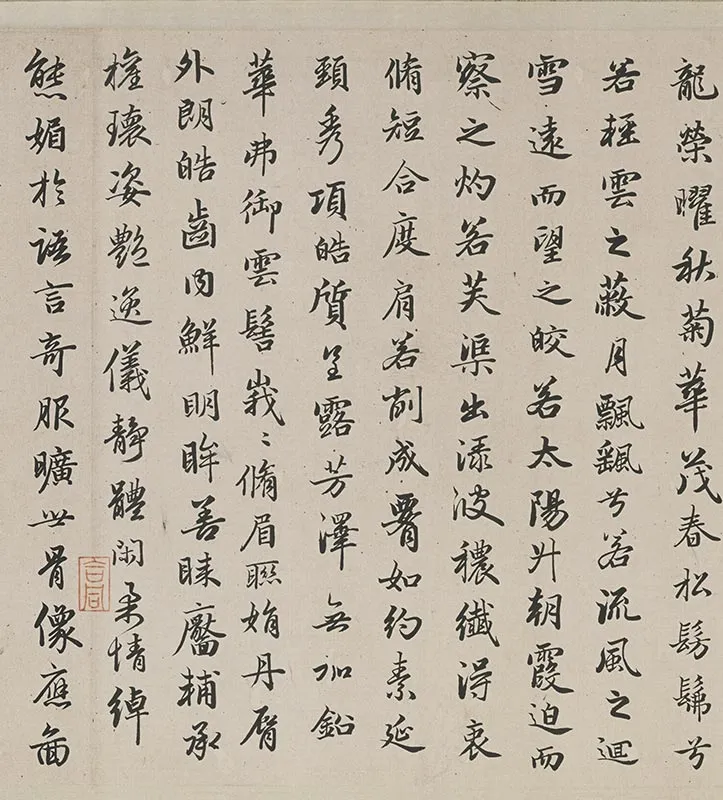 龍榮曜秋菊華茂春松髣髴兮
若輕雲之蔽月飄颻兮若流風之迴
雪遠而望之皎若太陽升朝霞迫而
察之灼若芙渠出淥波穠纖得衷
脩短合度肩若削成腰如約素延
頸秀項皓質呈露芳澤無加鉛
華弗御雲髻峩〻脩眉聮娟丹脣
外朗皓齒內鮮明眸善睞靨輔承
權瓌姿艷逸儀靜體閑柔情綽
態媚於語言奇服曠世骨像應圖